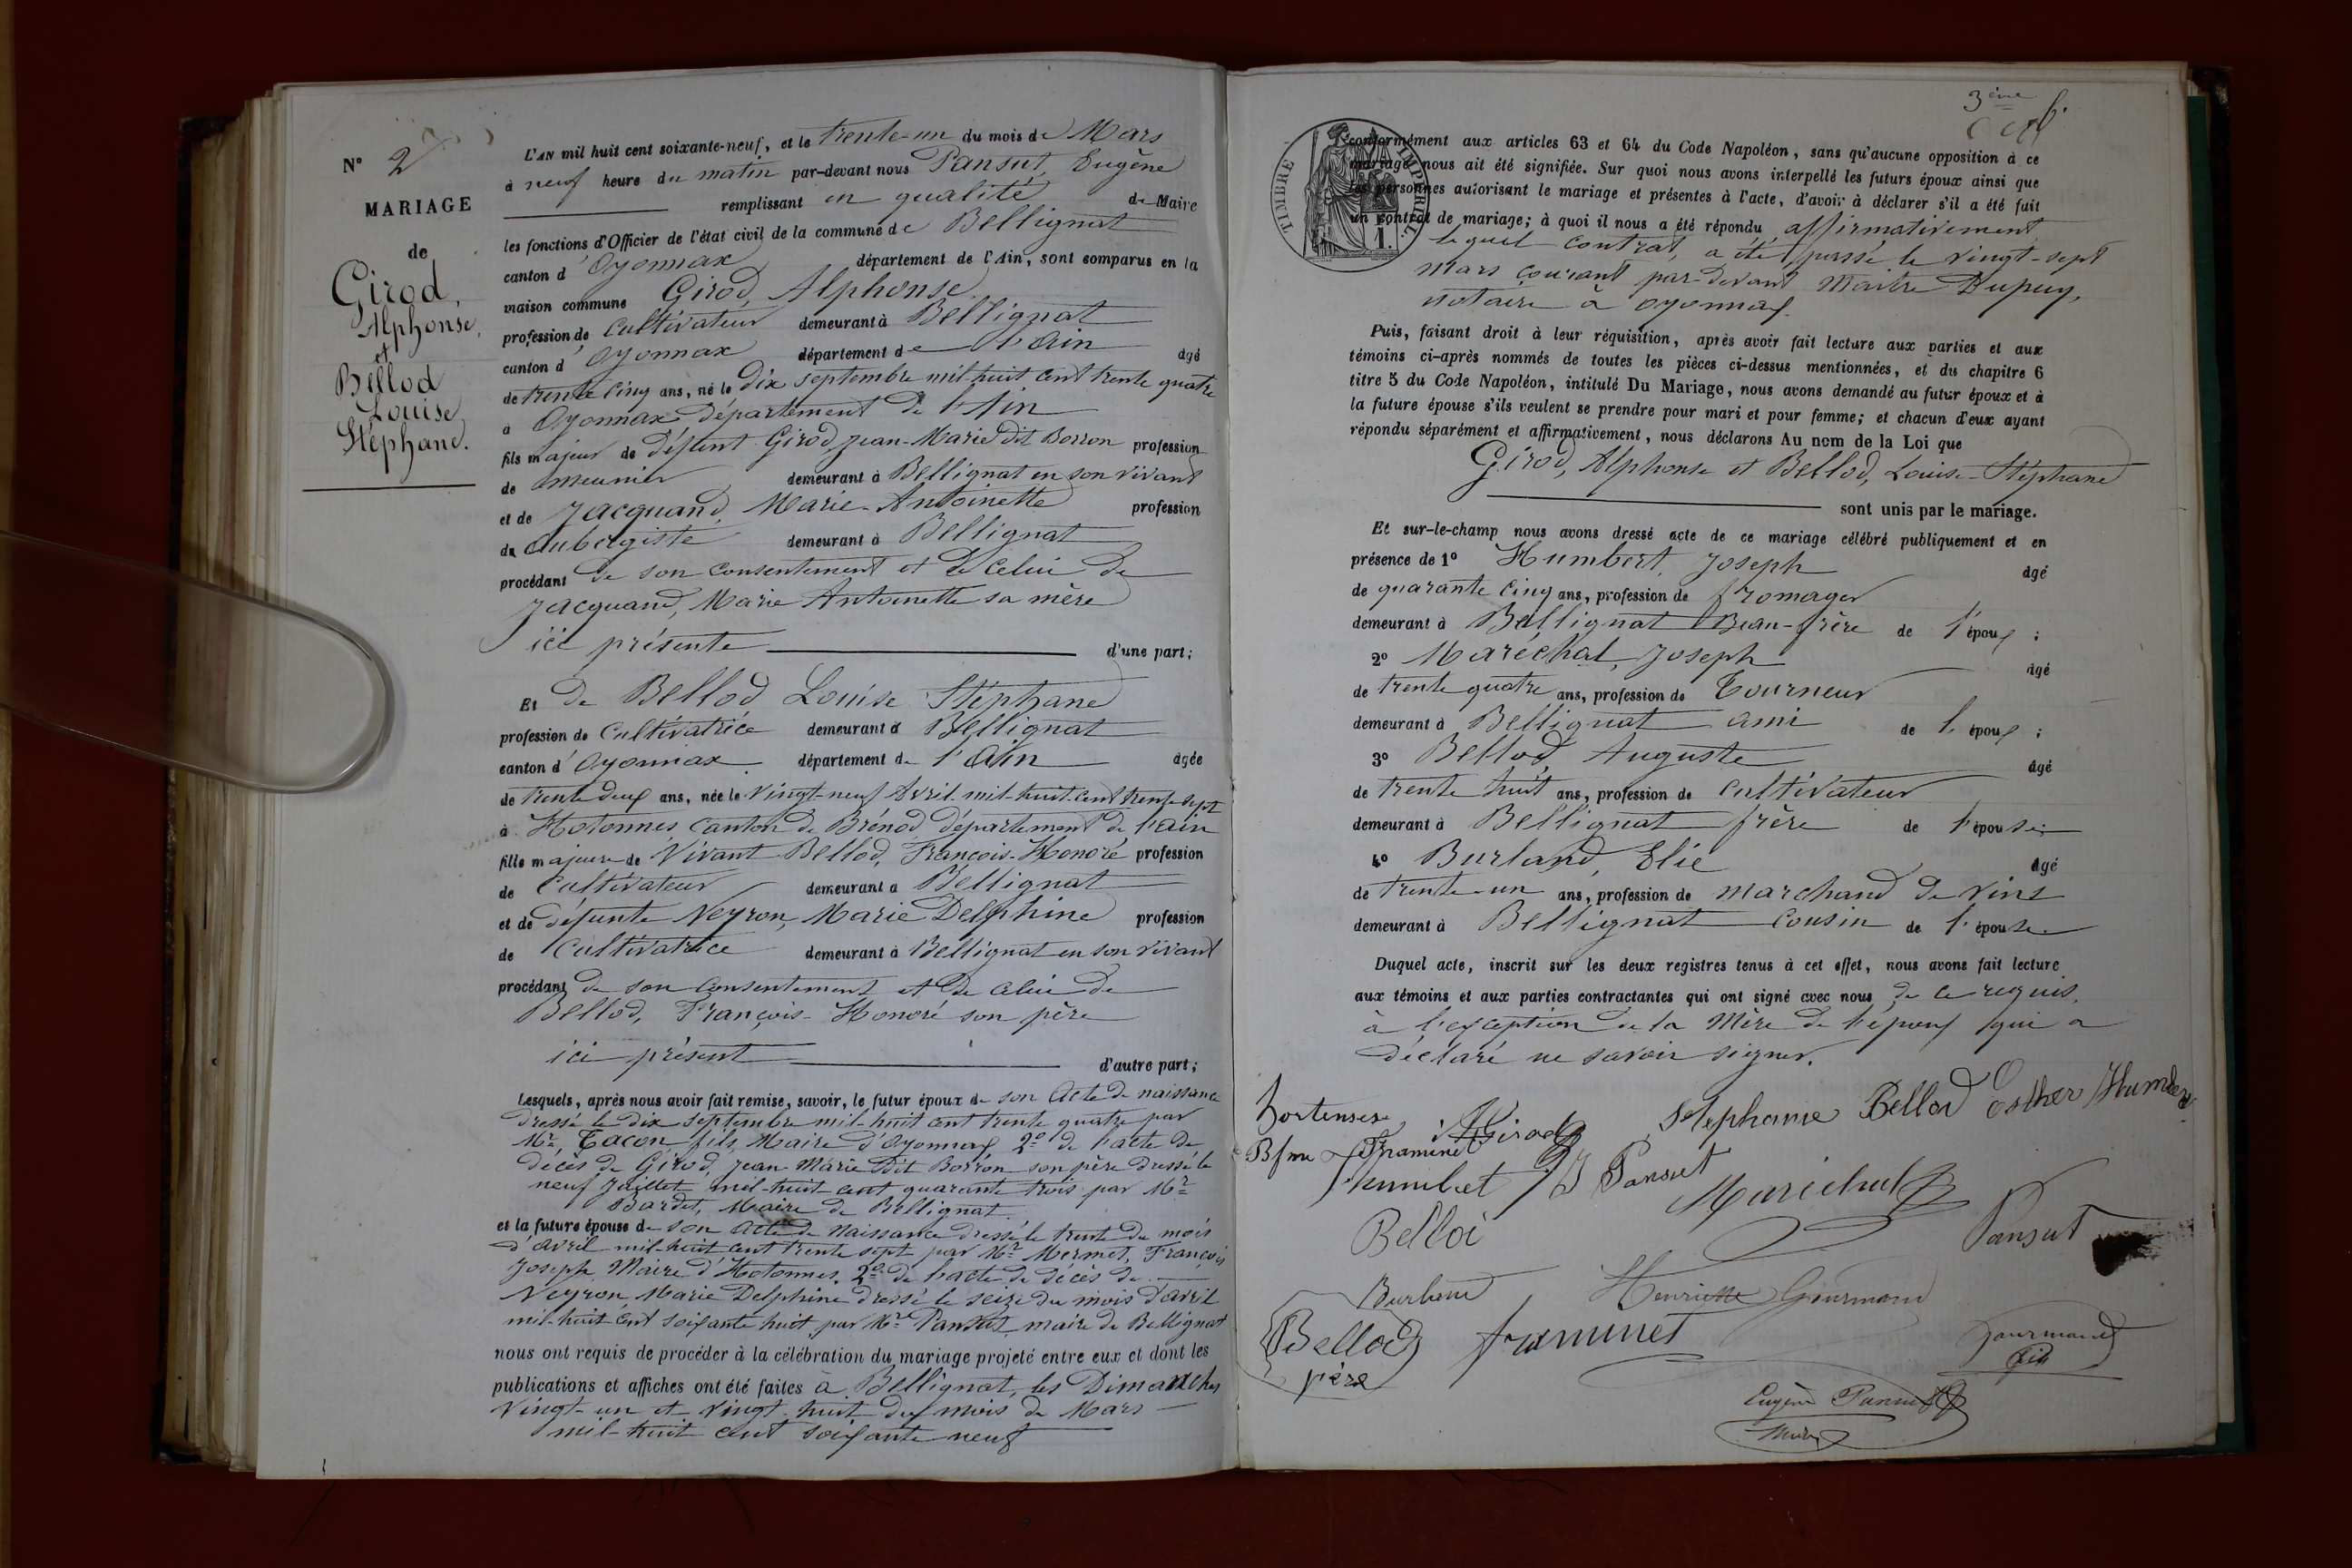 N° 2
MARIAGE
de
Girod,
Alphonse,
et
Bellod
Louise
Stéphane.
L'AN mil huit cent soixante-neuf, et le trente-un du mois de Mars
à neuf heure du matin par-devant nous Pansut, Eugène
remplissant en qualité de Maire
les fonctions d'Officier de l'état civil de la commune de Bellignat
canton d'Oyonnax département de l'Ain, sont comparus en la
maison commune Girod, Alphonse
profession de cultivateur demeurant à Bellignat
canton d'Oyonnax département de l'Ain âgé
de trente cinq ans, né le dix septembre mil huit cent trente quatre
à Oyonnax département de l'Ain
fils majeur de défunt Girod, Jean-Marie dit Borron profession
de meunier demeurant à Bellignat en son vivant
et de Jacquand, Marie-Antoinette profession
de aubergiste demeurant à Bellignat
procédant de son consentement et de celui de
Jacquand, Marie Antoinette sa mère
ici présente d'une part;
Et de Bellod Louise Stéphane
profession de cultivatrice demeurant à Bellignat
canton d'Oyonnax département de l'Ain âgée
de trente deux ans, née le vingt-neuf Avril mil-huit-cent trente-sept
à Hotonnes canton de Brénod département de l'Ain
fille majeure de vivant Bellod, François-Honoré profession
de cultivateur demeurant à Bellignat
et de défunte Neyron, Marie Delphine profession
de cultivatrice demeurant à Bellignat en son vivant
procédant de son consentement et de celui de
Bellod, François-Honoré son père
ici présent d'autre part;
Lesquels, après nous avoir fait remise, savoir, le futur époux de son acte de naissance
dressé le dix septembre mil-huit cent trente quatre par
Mr. Tacon fils, Maire d'Oyonnax, 2° de l'acte de
décès de Girod, Jean Marie dit Borron son père dressé le
neuf Juillet mil-huit-cent quarante trois par Mr.
Bardet, Maire de Bellignat
et la future épouse de son acte de naissance dressé le trente du mois
d'avril mil-huit cent trente sept par Mr. Mermet, François
Joseph, Maire d'Hotonnes, 2° de l'acte de décès de
Neyron Marie Delphine dressé le seize du mois d'avril
mil-huit cent soixante huit par Mr. Pansut, maire de Bellignat
nous ont requis de procéder à la célébration du mariage projeté entre eux et dont les
publications et affiches ont été faites à Bellignat, les Dimanches
vingt-un et vingt-huit du mois de Mars
mil-huit cent soixante neuf
3ème
TIMBRE IMPERIAL.
conformément aux articles 63 et 64 du Code Napoléon, sans qu'aucune opposition à ce
mariage nous ait été signifiée. Sur quoi nous avons interpellé les futurs époux ainsi que
les personnes autorisant le mariage et présentes à l'acte, d'avoir à déclarer s'il a été fait
un contrat de mariage; à quoi il nous a été répondu affirmativement
lequel contrat, a été passé le vingt-sept
mars courant par-devant Maître Dupuy,
notaire à Oyonnax.
Puis, faisant droit à leur réquisition, après avoir fait lecture aux parties et aux
témoins ci-après nommés de toutes les pièces ci-dessus mentionnées, et du chapitre 6
titre 5 du Code Napoléon, intitulé Du Mariage, nous avons demandé au futur époux et à
la future épouse s'ils veulent se prendre pour mari et pour femme; et chacun d'eux ayant
répondu séparément et affirmativement, nous déclarons Au nom de la Loi que
Girod, Alphonse et Bellod, Louise-Stéphane
sont unis par le mariage.
Et sur-le-champ nous avons dressé acte de ce mariage célébré publiquement et en
présence de 1° Humbert, Joseph âgé
de quarante cinq ans, profession de fromager
demeurant à Bellignat Beau-frère de l'époux;
2° Maréchal, Joseph âgé
de trente quatre ans, profession de Tourneur
demeurant à Bellignat ami de l'époux;
3° Bellod, Auguste âgé
de trente huit ans, profession de cultivateur
demeurant à Bellignat frère de l'épouse;
4° Burland, Elie âgé
de trente-un ans, profession de marchand de vins
demeurant à Bellignat cousin de l'épouse
Duquel acte, inscrit sur les deux registres tenus à cet effet, nous avons fait lecture
aux témoins et aux parties contractantes qui ont signé avec nous de ce requis.
à l'exception de la Mère de l'époux qui a
déclaré ne savoir signer.
hortense AGirod Stephanie Bellod Esther Humbert
framinet
humbert J Pansut Marechal
Pansut
Burland Henriette Gourmand
Bellod père framinet Gourmand
Eugène Pansut
Maire